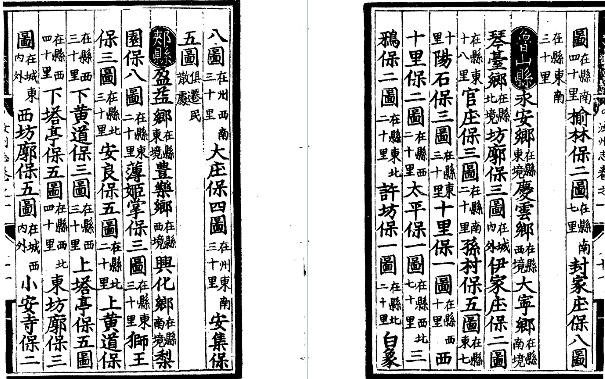 圖在縣南四十里榆林保二圖在縣南七里封家庄保八圖
在縣東南三十里
魯山縣永安鄉在縣東境慶雲鄉在縣西境大寧鄉在縣南境
琴臺鄉在縣北境坊廓保三圖在城內外伊家庄保二圖
在縣北十八里官庄保三圖在縣東北二十里孫村保五圖在縣東七
十里陽石保三圖在縣東三十里十里保一圖在縣西十里西
十里保二圖在縣西二十里太平保一圖在縣西北七十里三
鴉保二圖在縣東北二十里許坊保一圖在縣北二十里白象
八圖在州西南三十里大庄保四圖在州東南三十里安集保
五圖俱遷民散處
郟縣盈益鄉在縣東境豊樂鄉在縣西境興化鄉在縣南境梨
園保八圖在縣東北二十里薄姬掌保三圖在縣東三十里獅王
保三圖在縣北三十里安良保五圖在縣北二十里上黃道保
三圖在縣西三十里下黃道保三圖在縣西三十里上塔亭保五圖
在縣西四十里下塔亭保五圖在縣西北四十里東坊廓保三
圖在城東內外西坊廓保五圖在城西內外小安寺保二